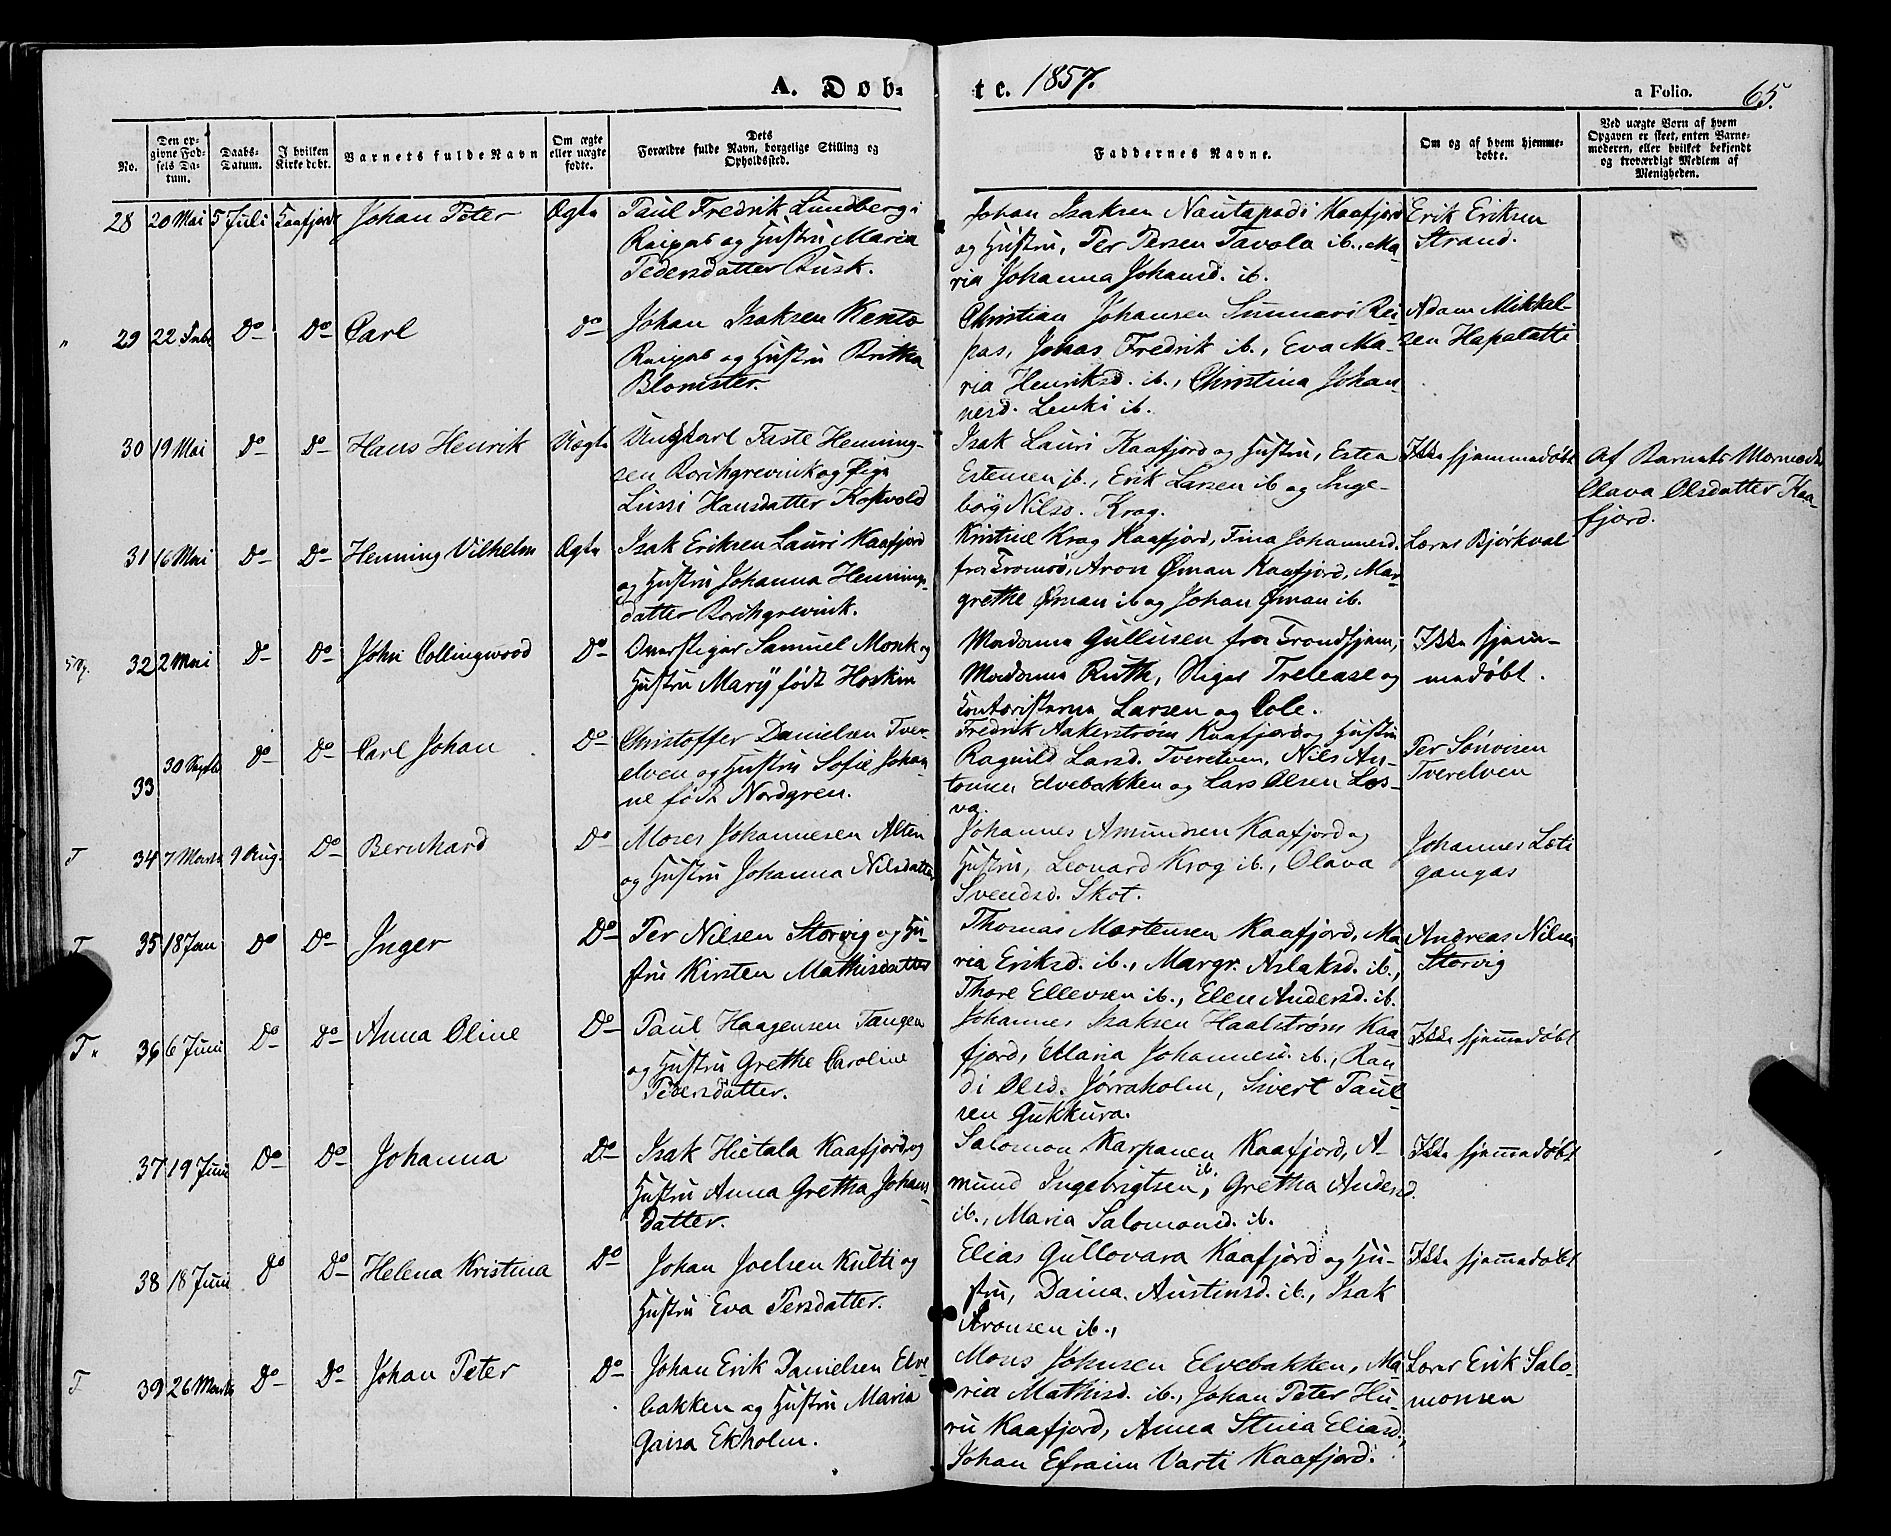 A. Døb-
te. 1857.
a Folio. 65.
No.
Den op-
givne Fød-
sels Da-
tum.
Daabs-
Datum.
I hvilken
Kirke døbt.
Barnets fulde Navn
Om ægte
eller uægte
fødte.
Dets
Forældre fulde Navn, borgelige Stilling og
Opholdssted.
Faddernes Navne.
Om og af hvem hjemme-
døbte.
Ved uægte Børn af hvem
Opgaven er skeet, enten Barne-
moderen, eller hvilket bekjendt
og troværdigt Medlem af
Menigheden.
28 20 Mai 5 Juli Kaafjord Johan Peter Ægte
Paul Fredrik Lundberg i
Raipas og Hustru Maria
Pedersdatter Rusk.
Johan Isaksen Nautapadi Kaafjord
og Hustru, Per Persen Tavola ib., Ma-
ria Johanna Johansd. ib.
Erik Eriksen
Strand.
29 22 Febr Do Do Carl Do
Johan Isaksen Kento
Raipas og Hustru Britha
Blomster.
Christian Johansen Sunnari Rei-
pas, Johas Fredrik ib., Eva Ma-
ria Henriksd. ib., Christina Johan-
nesd. Lenki ib.
Adam Mikkel-
sen Hapalatti
30 19 Mai Do Do Hans Henrik Uægte
Ungkarl Faste Henning-
sen Borchgrevink og Pige
Lussi Hansdatter Kokvold
Isak Lauri Kaafjord og Hustru, Ester
Estensen ib., Erik Larsen ib og Inge-
borg Nilsd. Krog.
Ikke hjemmedøbt
Af Barnets Mormoder
Olava Olsdatter Kaa-
fjord.
31 16 Mai Do Do Henning Vilhelm Ægte
Isak Eriksen Lauri Kaafjord
og Hustru Johanna Hennings-
datter Borchgrevink.
Kristine Krog Kaafjord, Fina Johannesd.
fra Tromsø, Aron Öman Kaafjord, Mar-
grethe Öman ib og Johan Öman ib.
Lærer Bjørkval
32 2 Mai Do Do John Collingwood Do
Overstiger Samuel Monk og
Hustru Mary født Hoskin
Madame Gullusen fra Trondhjem,
Madame Ruth, Piger Trelease og
Contoristerne Larsen og Cole.
Ikke hjem-
medøbt.
33 30 Do Do Carl Johan Do
Christoffer Danielsen Tver-
elven og Hustru Sofie Johan-
ne født Nordgren.
Fredrik Aakerstrøm Kaafjord og Hustru
Ragnild Larsd. Tverelven, Nils An-
tonsen Elvebakken og Lars Olsen Los-
va.
Per Sønvisen
Tverelven
T 34 7 Marts 9 Aug. Do Bernhard Do
Moses Johannesen Alten
og Hustru Johanna Nilsdatter
Johannes Amundsen Kaafjord og
Hustru, Leonard Krog ib., Olava
Svendsd. Skot.
Johannes Læti
gangas
T 35 18 Jan Do Do Inger Do
Per Nilsen Storvig og Hu-
stru Kirsten Mathisdatter
Thomas Mortensen Kaafjord, Ma-
ria Eriksd. ib., Margr. Aslaksd. ib.,
Thore Ellevsen ib., Elen Andersd. ib.
Andreas Nilsen
Storvig
T 36 6 Juni Do Do Anna Oline Do
Paul Haagensen Tangen
og Hustru Grethe Caroline
Pedersdatter.
Johannes Isaksen Haalstrøm Kaa-
fjord, Maria Johannesd. ib., Ran-
di Olsd. Jørraholm, Sivert Paul-
sen Gukkura.
Ikke hjemmedøbt
37 19 Juni Do Do Johanna Do
Isak Hietala Kaafjord og
Hustru Anna Gretha Johans-
datter.
Salomon Karpanen Kaafjord, A-
mund Ingebrigtsen ib., Gretha Andersd.
ib., Maria Salomonsd. ib.
Ikke hjemmedøbt
38 18 Juni Do Do Helena Kristina Do
Johan Joelsen Kulti og
Hustru Eva Persdatter.
Elias Gullovara Kaafjord og Hu-
stru, Daina Austinsd. ib., Isak
Aronsen ib.,
Ikke hjemmedøbt
T 39 26 Marts Do Do Johan Peter Do
Johan Erik Danielsen Elve-
bakken og Hustru Maria
Gaisa Ekholm.
Mons Johnsen Elvebakken, Ma-
ria Mathisd. ib., Johan Peter Hu-
ru Kaafjord, Anna Stina Eliasd.,
Johan Efraim Varti Kaafjord.
Lærer Erik Salo-
monsen